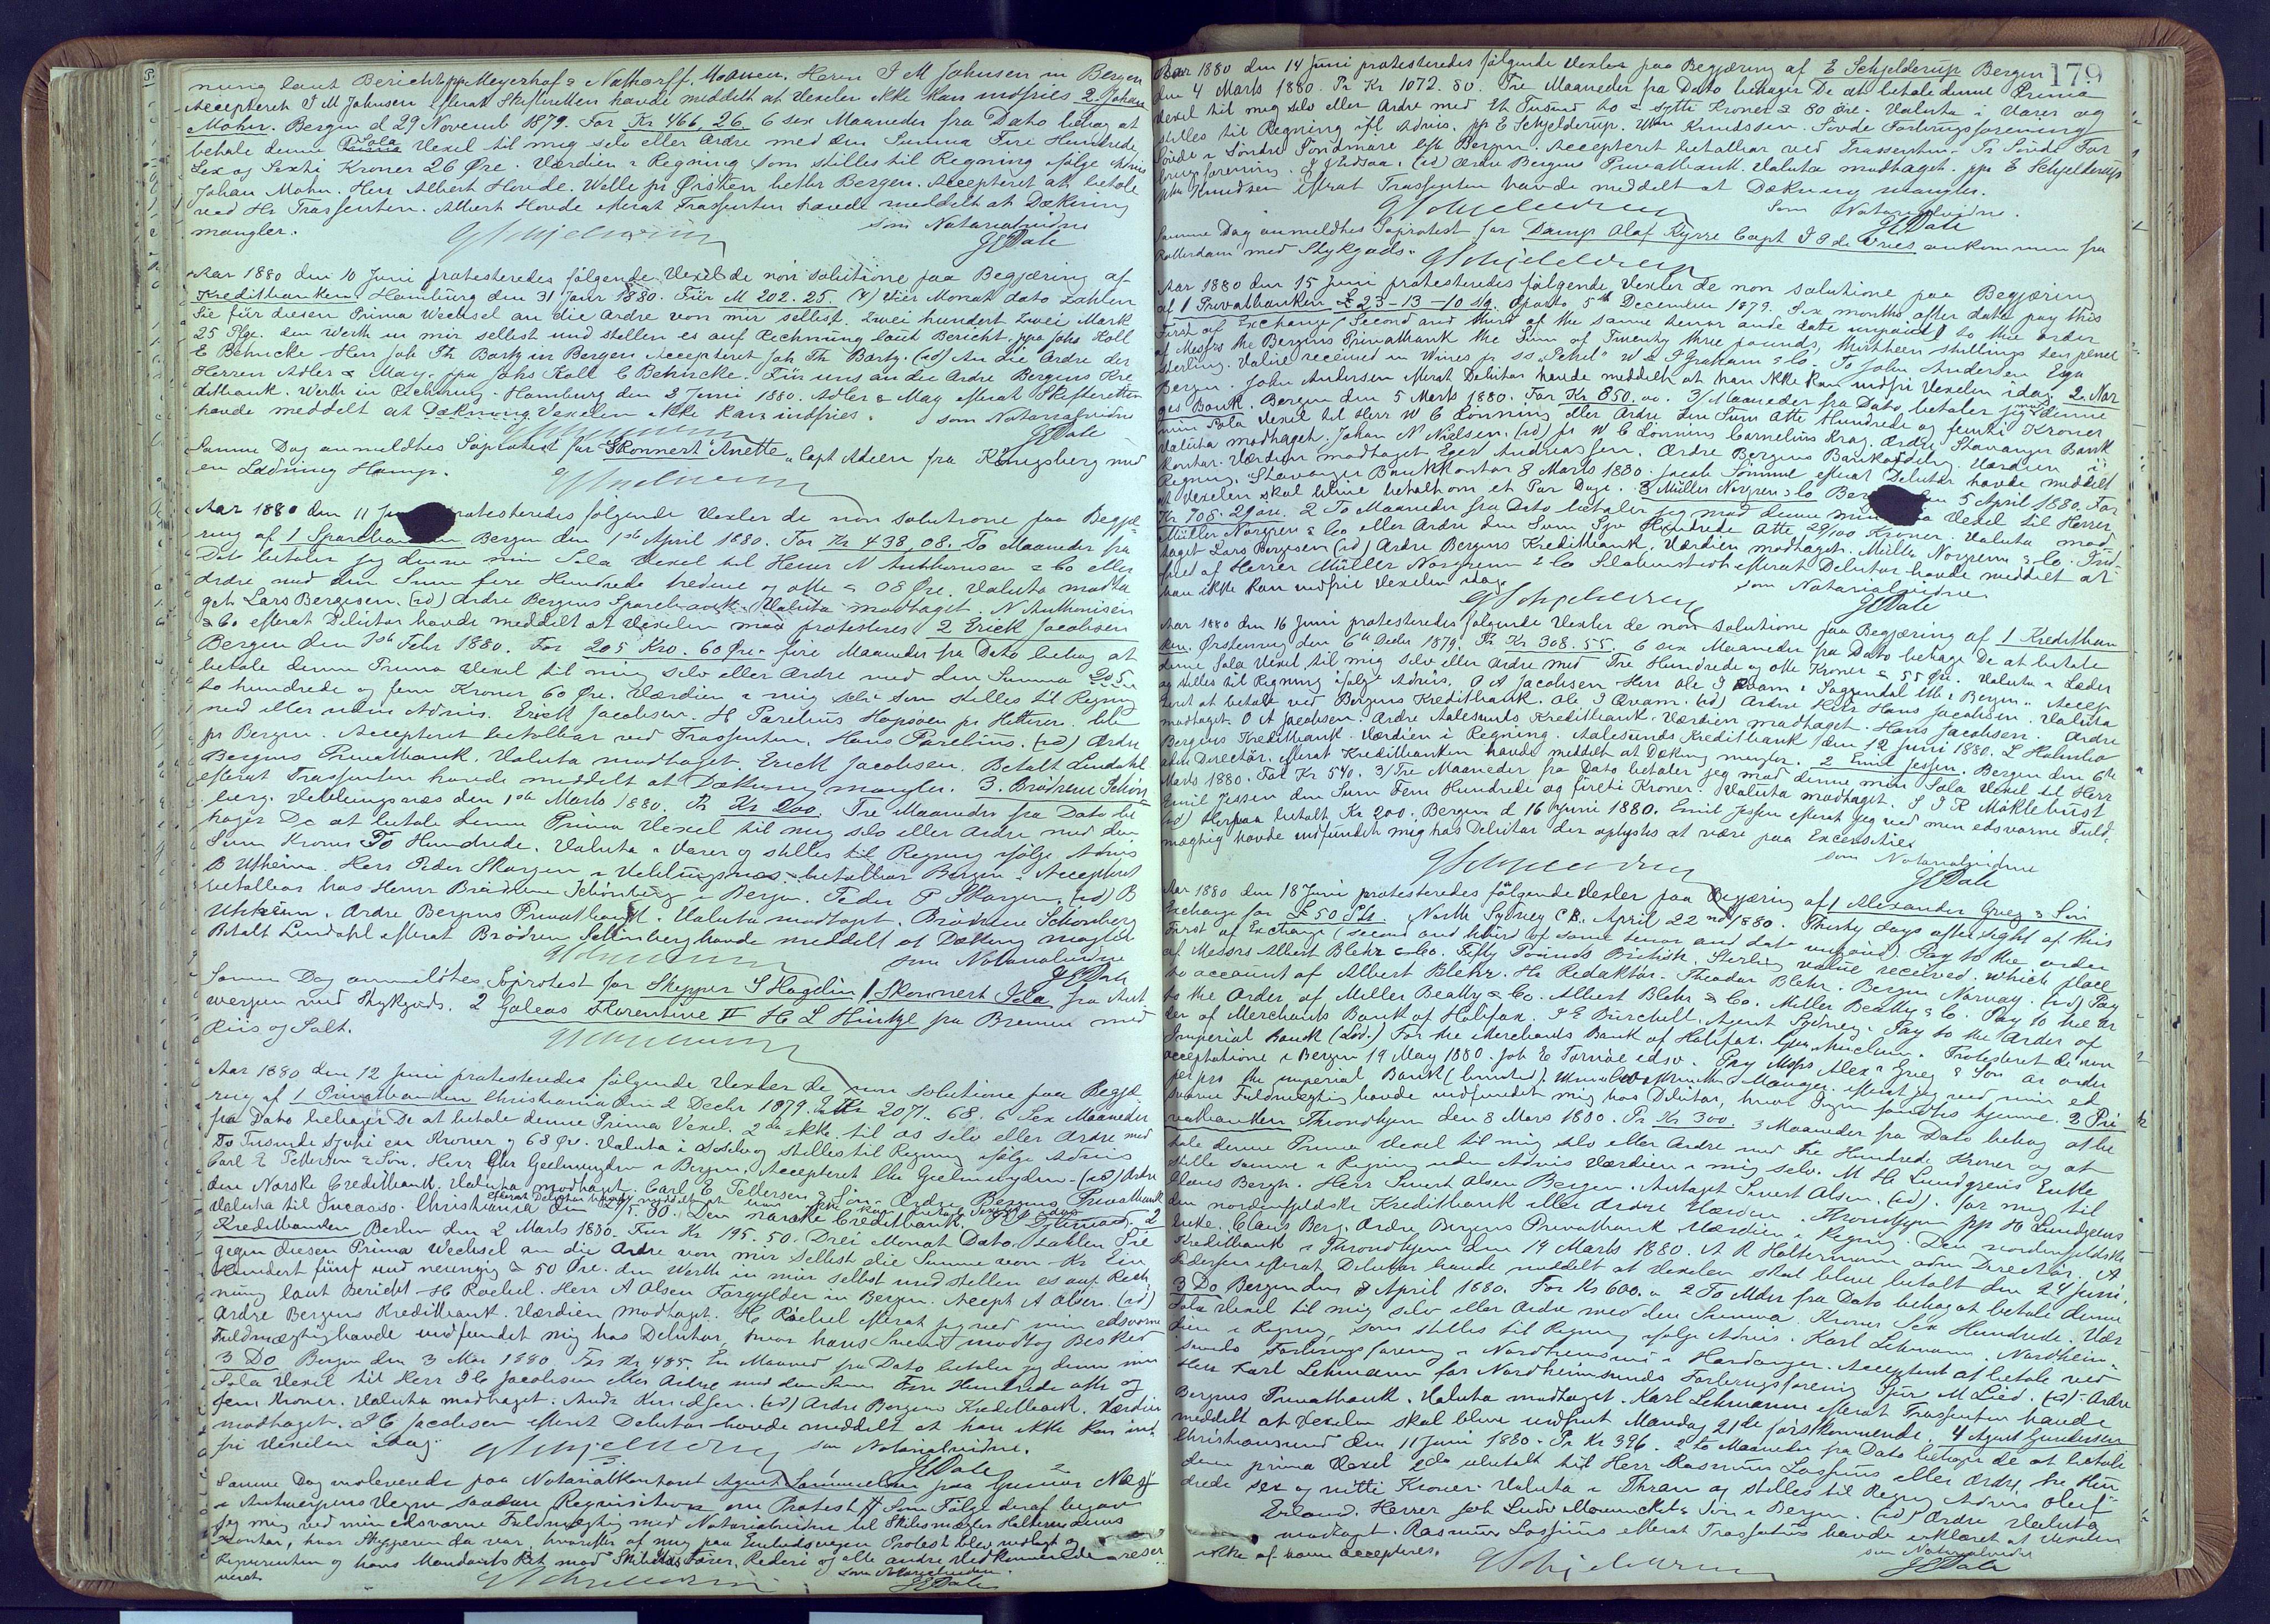 nung laut Bericht pp Meyerhof & Nathorff. Herrn J M Johnsen in Bergen
Accepteret J M Johnsen efterat Skifteretten havde meddelt at Vexelen ikke kan indfries 2. Johan
Mohn. Bergen d 29 Novemb 1879. For Kr 466, 26. 6 sex Maaneder fra Dato behag at
betale denne Sola Vexel til mig selv eller Ordre med den Summa Fire Hundrede
Sex og Sexti Kroner 26 Øre. Værdien i Regning som stilles til Regning ifølge Advis
Johan Mohn. Herr Albert Hovde. Welle pr Ørsten betlbr Bergen. Accepteret at betale
ved Hr Trassenten. Albert Hovde efterat Trassenten havde meddelt at Dækning
mangler. som Notarialvidne
JEDale
Aar 1880 den 10 Juni protesteredes følgende Vexel de non solutione paa Begjæring af
Kreditbanken. Hamburg den 31 Janr 1880. Für M 202. 25. (4) Vier Monat dato zahlen
Sie für diesen Prima Wechsel an die Ordre von mir selbst. Zwei hundert zwei Mark
25 Pfge. den Werth in mir selbst und stellen es auf Rechnung laut Bericht. ppa Johs Koll
E Behncke Herr Joh Th Barty in Bergen Accepteret Joh Th Barty. (id) An die Ordre der
Herren Adler & May. ppa Johs Koll E Behncke. Für uns an die Ordre Bergens Kre
ditbank. Werth in Rechnung. Hamburg den 2 Juni 1880. Adler & May efterat Skifteretten
havde meddelt at Dækning Vexelen ikke kan indfries. som Notarialvidne
JEDale
Samme Dag anmeldtes Søprotest for Skonnert "Anette" Capt Adeen fra Königsberg med
en Ladning Hamp.
Aar 1880 den 11 protesteredes følgende Vexler de non solutione paa Begjæ
ring af 1 Sparebanken Bergen den 1ste April 1880. For Kr 438,08. To Maaneder fra
Dato betaler jeg denne min Sola Vexel til Herrer N Anthonisen & Co eller
Ordre med den Sum fire Hundrede tredive og otte & 08 Øre. Valuta modta
get Lars Bergesen. (id) Ordre Bergens Sparebank. Valuta modtaget. N Anthonisen
& Co efterat Debitor havde meddelt at Vexelen maa protesteres. 2 Erick Jacobsen
Bergen den 1ste Febr 1880. For 205 Kro. 60 Øre. fire Maaneder fra Dato behag at
betale denne Prima Vexel til mig selv eller Ordre med den Summa 205
to hundrede og fem Kroner 60 Øre. Værdien i mig selv som stilles til Regng
med eller uden Advis. Erick Jacobsen. H Parelius Hopsøen pr Hitteren. btlr
pr Bergen. Accepteret betalbar ved Trassenten. Hans Parelius. (id) Ordre
Bergens Privatbank. Valuta modtaget. Erick Jacobsen. Betalt Lindahl
efterat Trassenten havde meddelt at Dækning mangler. 3. Brødrene Schön
berg. Veblungsnæs den 1ste Marts 1880. Pr Kr 200. Tre Maaneder fra Dato be
hager De at betale denne Prima Vexel til mig selv eller Ordre med den
Sum Kroner To Hundrede. Valuta i Varer og stilles til Regning ifølge Advis
B Utheim. Herr Peder Skorgen i Veblungsnæs betalbar Bergen. Accepteret
betalbar hos Herrer Brødrene Schönberg i Bergen. Peder P Skorgen. (id) B
Utheim. Ordre Bergens Privatbank. Valuta modtaget. Brødrene Schönberg
Betalt Lindahl efterat Brødrene Schönberg havde meddelt at Dækng mangler
som Notarialvidne
JEDale
Samme Dag anmeldtes Søprotest for Skipper S Hagelin 1 Skonnert Ida fra Ant
werpen med Stykgods. 2 Galeas Florentine II H L Hintze fra Bremen med
Riis og Salt.
Aar 1880 den 12 Juni protesteredes følgende Vexler de non solutione paa Begjæ
ring af 1 Privatbanken Christiania den 2 Decbr 1879. Kr 2071. 68. 6 Sex Maaneder
fra Dato behager De at betale denne Prima Vexel. 2da ikke til os selv eller Ordre med
To Tusinde sytti en Kroner og 68 Øre. Valuta i os selv og stilles til Regning ifølge Advis
Carl E Pettersen & Søn. Herr Chr Geelmuyden i Bergen. Accepteret Chr Geelmuyden. (id) Ordre
den Norske Creditbank. Valuta modtaget. Carl E Pettersen & Søn. Ordre Bergens Privatbank
Valuta til Incasso. Christiania den 24/5. 80. Den norske Creditbank. 2
Kreditbanken Berlin den 2 Marts 1880. Für Kr 195. 50. Drei Monat Dato zahlen Sie
gegen diesen Prima Wechsel an die Ordre von mir selbst die Summe von Kr Ein
Hundert fünf und neunzig & 50 Øre. den Werth in mir selbst und stellen es auf Rech
nung laut Bericht. H Roebel. Herr A Olsen Forgylder in Bergen. Accept A Olsen. (id)
Ordre Bergens Kreditbank. Værdien modtaget. H Roebel efterat jeg ved min edsvorne
Fuldmægtig havde indfundet mig hos Debitor, hvor hans Svend modtog Besked
3 Do Bergen den 3 Mai 1880 For Kr 485. En Maaned fra Dato betaler jeg denne min
Sola Vexel til Herr J C Jacobsen eller Ordre med den Sum Fire Hundrede otti og
fem Kroner. Valuta modtaget. Ands Knudsen. (id) Ordre Bergens Kreditbank. Værdien
modtaget. J C Jacobsen efterat Debitor havde meddelt at han ikke kan ind
fri Vexelen idag. som Notarialvidne.
JEDale
Samme Dag indleverede paa Notarialkontoret Agent Samuelsen paa
i Antwerpens Vegne saadan Requisition om Protest # Som Følge deraf begav
jeg mig ved min edsvorne Fuldmægtig med Notarialvidne til Skibsmægler Haltermanns
Kontor, hvor Skipperen da var, hvorefter af mig paa Embedsvegne Protest blev nedlagt og
Reqvirenten og hans Mandants Ret mod Skibets Fører, Rederi og alle andre Vedkommende reser
veret. som Notarialvidne.
JEDale
179
Aar 1880 den 14 Juni protesteredes følgende Vexler paa Begjæring af E Schjelderup Bergen
den 4 Marts 1880. Pr Kr 1072. 80. Tre Maaneder fra Dato behager De at betale denne Prima
Vexel til mig selv eller Ordre med Et Tusind to & sytti Kroner & 80 Øre. Valuta i Varer og
stilles til Regning ifl Advis. pp E Schjelderup. Knudssen. Sovde Forbrugsforening
Sovde i Søndre Søndmøre btlr Bergen. Accepteret betalbar ved Trassenten. Pr Sovde For
brugsforening. (id) Ordre Bergens Privatbank. Valuta modtaget. ppa E Schjelderup
Knudsen efterat Trassenten havde meddelt at Dækning mangler.
som Notarialvidne.
JEDale
Samme Dag anmeldtes Søprotest for Damp Olaf Kyrre Capt J P de Vries ankommen fra
Rotterdam med Stykgods.
Aar 1880 den 15 Juni protesteredes følgende Vexler de non solutione paa Begjæring
af 1 Privatbanken £ 23-13-10 stg. Oporto 5th December 1879. Six months after date pay this
First of Exchange (Second and third of the same tenor and date unpaid) to the order
of Messrs the Bergens Privatbank the Sum of Twenty three pounds, thirtheen shillings ten pence
sterling. Value received in Wines pr ss "Sehel" W & J Graham & Co. To John Andersen Esqr
Bergen. John Andersen efterat Debitor havde meddelt at han ikke kan indfri Vexelen idag. 2. Nor
ges Bank. Bergen den 5 Marts 1880. For Kr 850. 00. 3/Maaneder fra Dato betaler jeg mod denne
min Sola Vexel til Herr W C Lönning eller Ordre den Sum Otte Hundrede og femti Kroner
Valuta modtaget. Johan N Nielsen. (id) pr W C Lönning Cornelius Krag. Ordre Stavanger Bank
kontor. Værdien modtaget Eger Andreassen. Ordre Bergens Bankafdelng. Værdien i
Regning. Stavanger Bankkontor 8 Marts 1880. Jacob Sömme efterat Debitor havde meddelt
at Vexelen skal blive betalt om et Par Dage. 3 Müller Norgren & Co Ber en 5 April 1880. For
Kr 708. 29 øre. 2 To Maaneder fra Dato betaler jeg mod denne min Vexel til Herrer
Müller Norgren & Co eller Ordre den Sum Syv Hundrede Otte 29/100 Kroner. Valuta mod
taget Lars Bergesen (id) Ordre Bergens Kreditbank. Værdien modtaget. Müller Norgren & Co. Ind
fried af Herrer Müller Norgrenn & Co efterat Debitor havde meddelt at
han ikke kan indfrie Vexelen idag. som Notarialvidne
JEDale
Aar 1880 den 16 Juni protesteredes følgende Vexler de non solutione paa Begjæring af 1 Kreditban
ken. Ørstenvig den 6te Decbr 1879. Pr Kr 308. 55. 6 sex Maaneder fra Dato behage De at betale
denne Sola Vexel til mig selv eller Ordre med Tre Hundrede og otte Kroner & 55 Øre. Valuta i Læder
og stilles til Regning ifølge Advis. O A Jacobsen Herr Ole J Qvam i Sogndal btlr i Bergen. Accep
teret at betale ved Bergens Kreditbank. Ole J Qvam. (id) Ordre Herr Hans Jacobsen. Valuta
modtaget. O A Jacobsen. Ordre Aalesunds Kreditbank. Værdien modtaget. Hans Jacobsen. Ordre
Bergens Kreditbank. Værdien i Regning. Aalesunds Kreditbank den 12 Juni 1880. L Holmbo
adm Directør. efterat Kreditbanken havde meddelt at Dækng mangler. 2 Emil Jessen. Bergen den 6te
Marts 1880. For Kr 540. 3/Tre Maaneder fra Dato betaler jeg mod denne min Sola Vexel til Herr
Emil Jessen den Sum Fem Hundrede og firti Kroner. Valuta modtaget. S J R Möklebust
(id) Herpaa betalt Kr 200. Bergen d 16 Juni 1880. Emil Jessen efterat jeg ved min edsvorne Fuld
mægtig havde indfundet mig hos Debitor der oplystes at være paa
som Notarialvidne
JEDale
Aar 1880 den 18 Juni protesteredes følgende Vexler paa Begjæring af 1 Alexander Grieg & Søn
Exchange for £ 50 Stg. North Sydney CB. April 22nd 1880. Thirty days after sight of this
First of Exchange (second and third of same tenor and date unpaid) Pay to the order
of Messrs Albert Blehr & Co. Fifty Pounds British Sterling value received. which place
to account of Albert Blehr. Hr Redaktør Theodor Blehr. Bergen Norway. (id) Pay
to the Order of Miller Beatty & Co. Albert Blehr & Co. Miller Beatty & Co. Pay to the or
der of Merchants Bank of Halifax. J E Burchell. Agent Sydney. Pay to the Order of
Imperial Bank (Lod.) For the Merchants Bank of Halifax. Protesteret de non
acceptatione i Bergen 19 May 1880. Joh E Tornøe edsv. Pay Mssrs Alexr Grieg & Søn or order
per pro the imperial Bank (limited). Manager. efterat jeg ved min ed
svorne Fuldmægtig havde indfundet mig hos Debitor, hvor Ingen fandtes hjemme. 2 Pri
vatbanken Throndhjem den 8 Mars 1880. Pr Kr 300. 3 Maaneder fra Dato behag at be
tale denne Prima Vexel til mig selv eller Ordre med Tre Hundrede Kroner og at
stille samme i Regning uden Advis Værdien i mig selv. M H Lundgrens Enke
Claus Bergh. Herr Sivert Olsen Bergen. Antaget Sivert Olsen. (id). for mig til
den nordenfjeldske Kreditbank eller Ordre Værdien. Throndhjem pp H Lundgrens
Enke. Claus Berg. Ordre Bergens Privatbank Værdien i Regng. Den nordenfjeldske
Kreditbank i Throndhjem den 19 Marts 1880. A R Haltermann adm Directør. A
Pedersen efterat Debitor havde meddelt at Vexelen skal blive betalt den 24 Juni.
3 Do Bergen den 8 April 1880. For Kr 600. 2 To Mdr fra Dato behag at betale denne
Sola Vexel til mig selv eller Ordre med den Summa Kroner Sex Hundrede. Vær
dien i Regning, som stilles til Regning ifølge Advis. Karl Lehmann. Nordheim
sunds Forbrugsforeng i Nordheimsund i Hardanger. Accepteret at betale ved
Herr Karl Lehmann for Nordheimsunds Forbrugsforening Sjur M Lied. (id) Ordre
Bergens Privatbank. Valuta modtaget. Karl Lehmann efterat Trassenten havde
meddelt at Vexelen skal blive indfriet Mandag 21de førstkommende. 4 Agent Gundersen
Christiansund den 11 Juni 1880. Pr Kr 396. 2 to Maaneder fra Dato behager De at betale
denne prima Vexel 2da ubetalt til Herr Rasmus Lossius eller Ordre, tre Hun
drede sex og nitti Kroner. Valuta i Thran og stilles til Regng Advis Oluf
Erland. Herrer Joh Ludv Mowinckel & Søn i Bergen. (id) Ordre Valuta
modtaget. Rasmus Lossius efterat Trassatus havde erklæret at Vexelen
ikke af ham accepteres. som Notarialvidne
JEDale